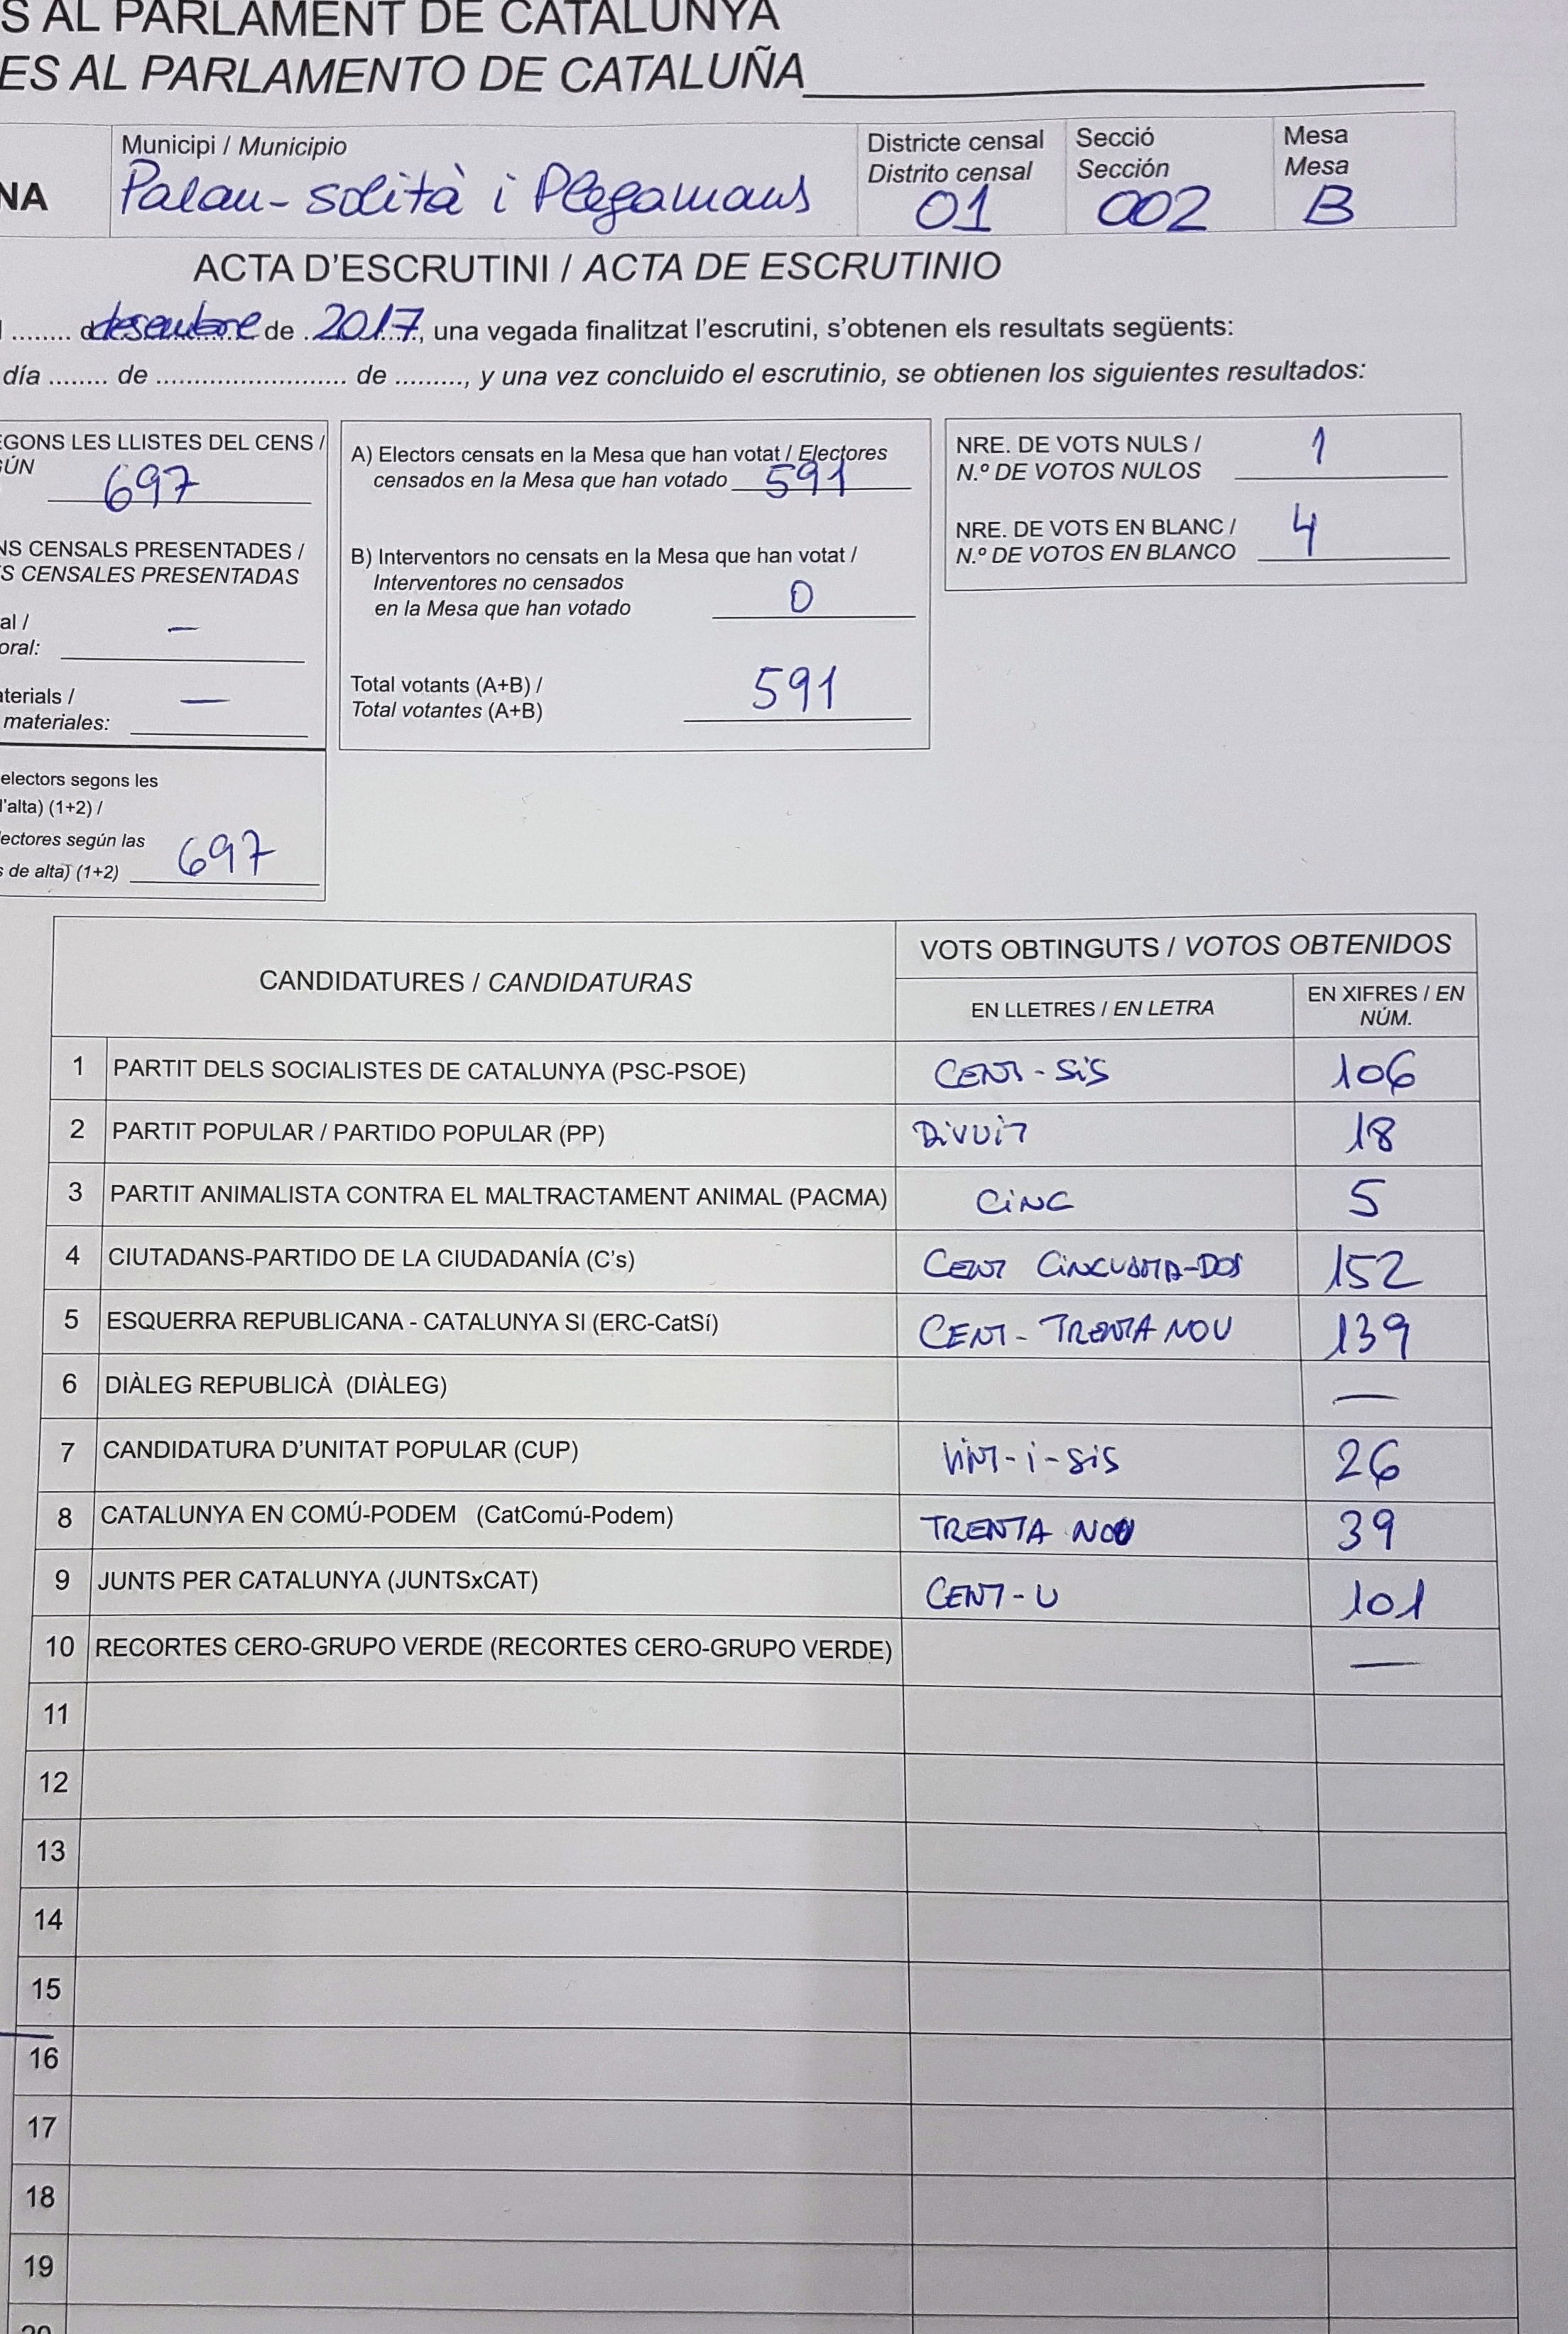 S AL PARLAMENT DE CATALUNYA
ES AL PARLAMENTO DE CATALUÑA
NA
Municipi / Municipio
Palau-solità i Plegamans
Districte censal
Distrito censal
01
Secció
Sección
002
Mesa
Mesa
B
ACTA D'ESCRUTINI / ACTA DE ESCRUTINIO
........ desembre de 2017, una vegada finalitzat l'escrutini, s'obtenen els resultats següents:
día ........ de ........................ de ........., y una vez concluido el escrutinio, se obtienen los siguientes resultados:
EGONS LES LLISTES DEL CENS /
GÚN 697
NS CENSALS PRESENTADES /
S CENSALES PRESENTADAS
al /
oral: —
aterials /
materiales: —
electors segons les
l'alta) (1+2) /
lectores según las
s de alta) (1+2) 697
A) Electors censats en la Mesa que han votat / Electores
censados en la Mesa que han votado 591
B) Interventors no censats en la Mesa que han votat /
Interventores no censados
en la Mesa que han votado 0
Total votants (A+B) /
Total votantes (A+B) 591
NRE. DE VOTS NULS /
N.º DE VOTOS NULOS 1
NRE. DE VOTS EN BLANC /
N.º DE VOTOS EN BLANCO 4
CANDIDATURES / CANDIDATURAS
VOTS OBTINGUTS / VOTOS OBTENIDOS
EN LLETRES / EN LETRA
EN XIFRES / EN
NÚM.
1 PARTIT DELS SOCIALISTES DE CATALUNYA (PSC-PSOE) CENT-SiS 106
2 PARTIT POPULAR / PARTIDO POPULAR (PP) DiVUiT 18
3 PARTIT ANIMALISTA CONTRA EL MALTRACTAMENT ANIMAL (PACMA) CiNC 5
4 CIUTADANS-PARTIDO DE LA CIUDADANÍA (C's) CENT CiNCUANTA-DOS 152
5 ESQUERRA REPUBLICANA - CATALUNYA SI (ERC-CatSí) CENT-TRENTA NOU 139
6 DIÀLEG REPUBLICÀ (DIÀLEG) —
7 CANDIDATURA D'UNITAT POPULAR (CUP) ViNT-i-SiS 26
8 CATALUNYA EN COMÚ-PODEM (CatComú-Podem) TRENTA NOU 39
9 JUNTS PER CATALUNYA (JUNTSxCAT) CENT-U 101
10 RECORTES CERO-GRUPO VERDE (RECORTES CERO-GRUPO VERDE) —
11
12
13
14
15
16
17
18
19
20